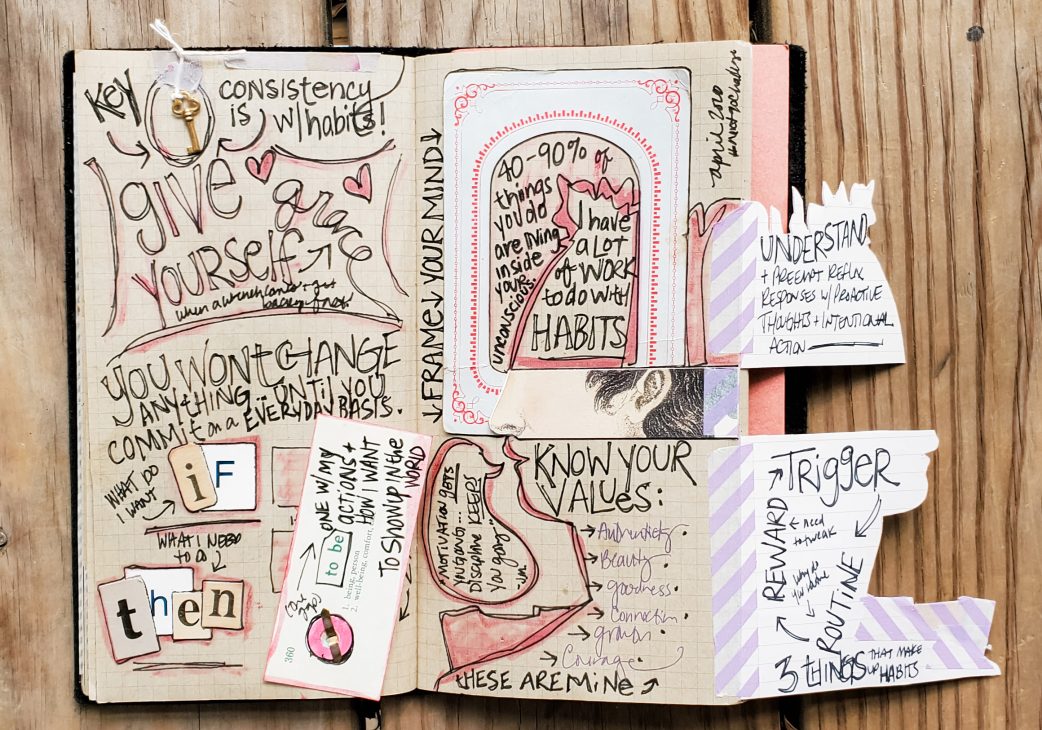 KEY
consistency
is w/habits!
GIVE
YOURSELF
grace
when a wrench comes
YOU WON'T CHANGE
ANYTHING ... UNTIL YOU
COMMIT on a EVERYDAY BASIS.
WHAT DO
I WANT
iF
WHAT I NEED
to do
then
to be
ONE W/ MY
ACTIONS +
HOW I WANT
TO SHOW UP IN the
WORLD
1. being, person
2. well-being, comfort
360
↓FRAME↓YOUR MIND↓
40-90% of
things
you do
are living
inside
your
unconscious.
I have
a LOT
of WORK
to do with
HABITS
april 2020
"MOTIVATION gets
you going...
Discipline KEEPS
you going"
KNOW YOUR
VALUES:
→ Authenticity.
→ Beauty.
→ goodness.
→ Connection.
→ growth.
→ Courage.
THESE ARE MINE
UNDERSTAND
+ PREEMPT REFLEX
RESPONSES W/ PROACTIVE
THOUGHTS + INTENTIONAL
ACTION
TRIGGER
REWARD
← need
to tweak
ROUTINE
3 THINGS THAT MAKE
UP HABITS